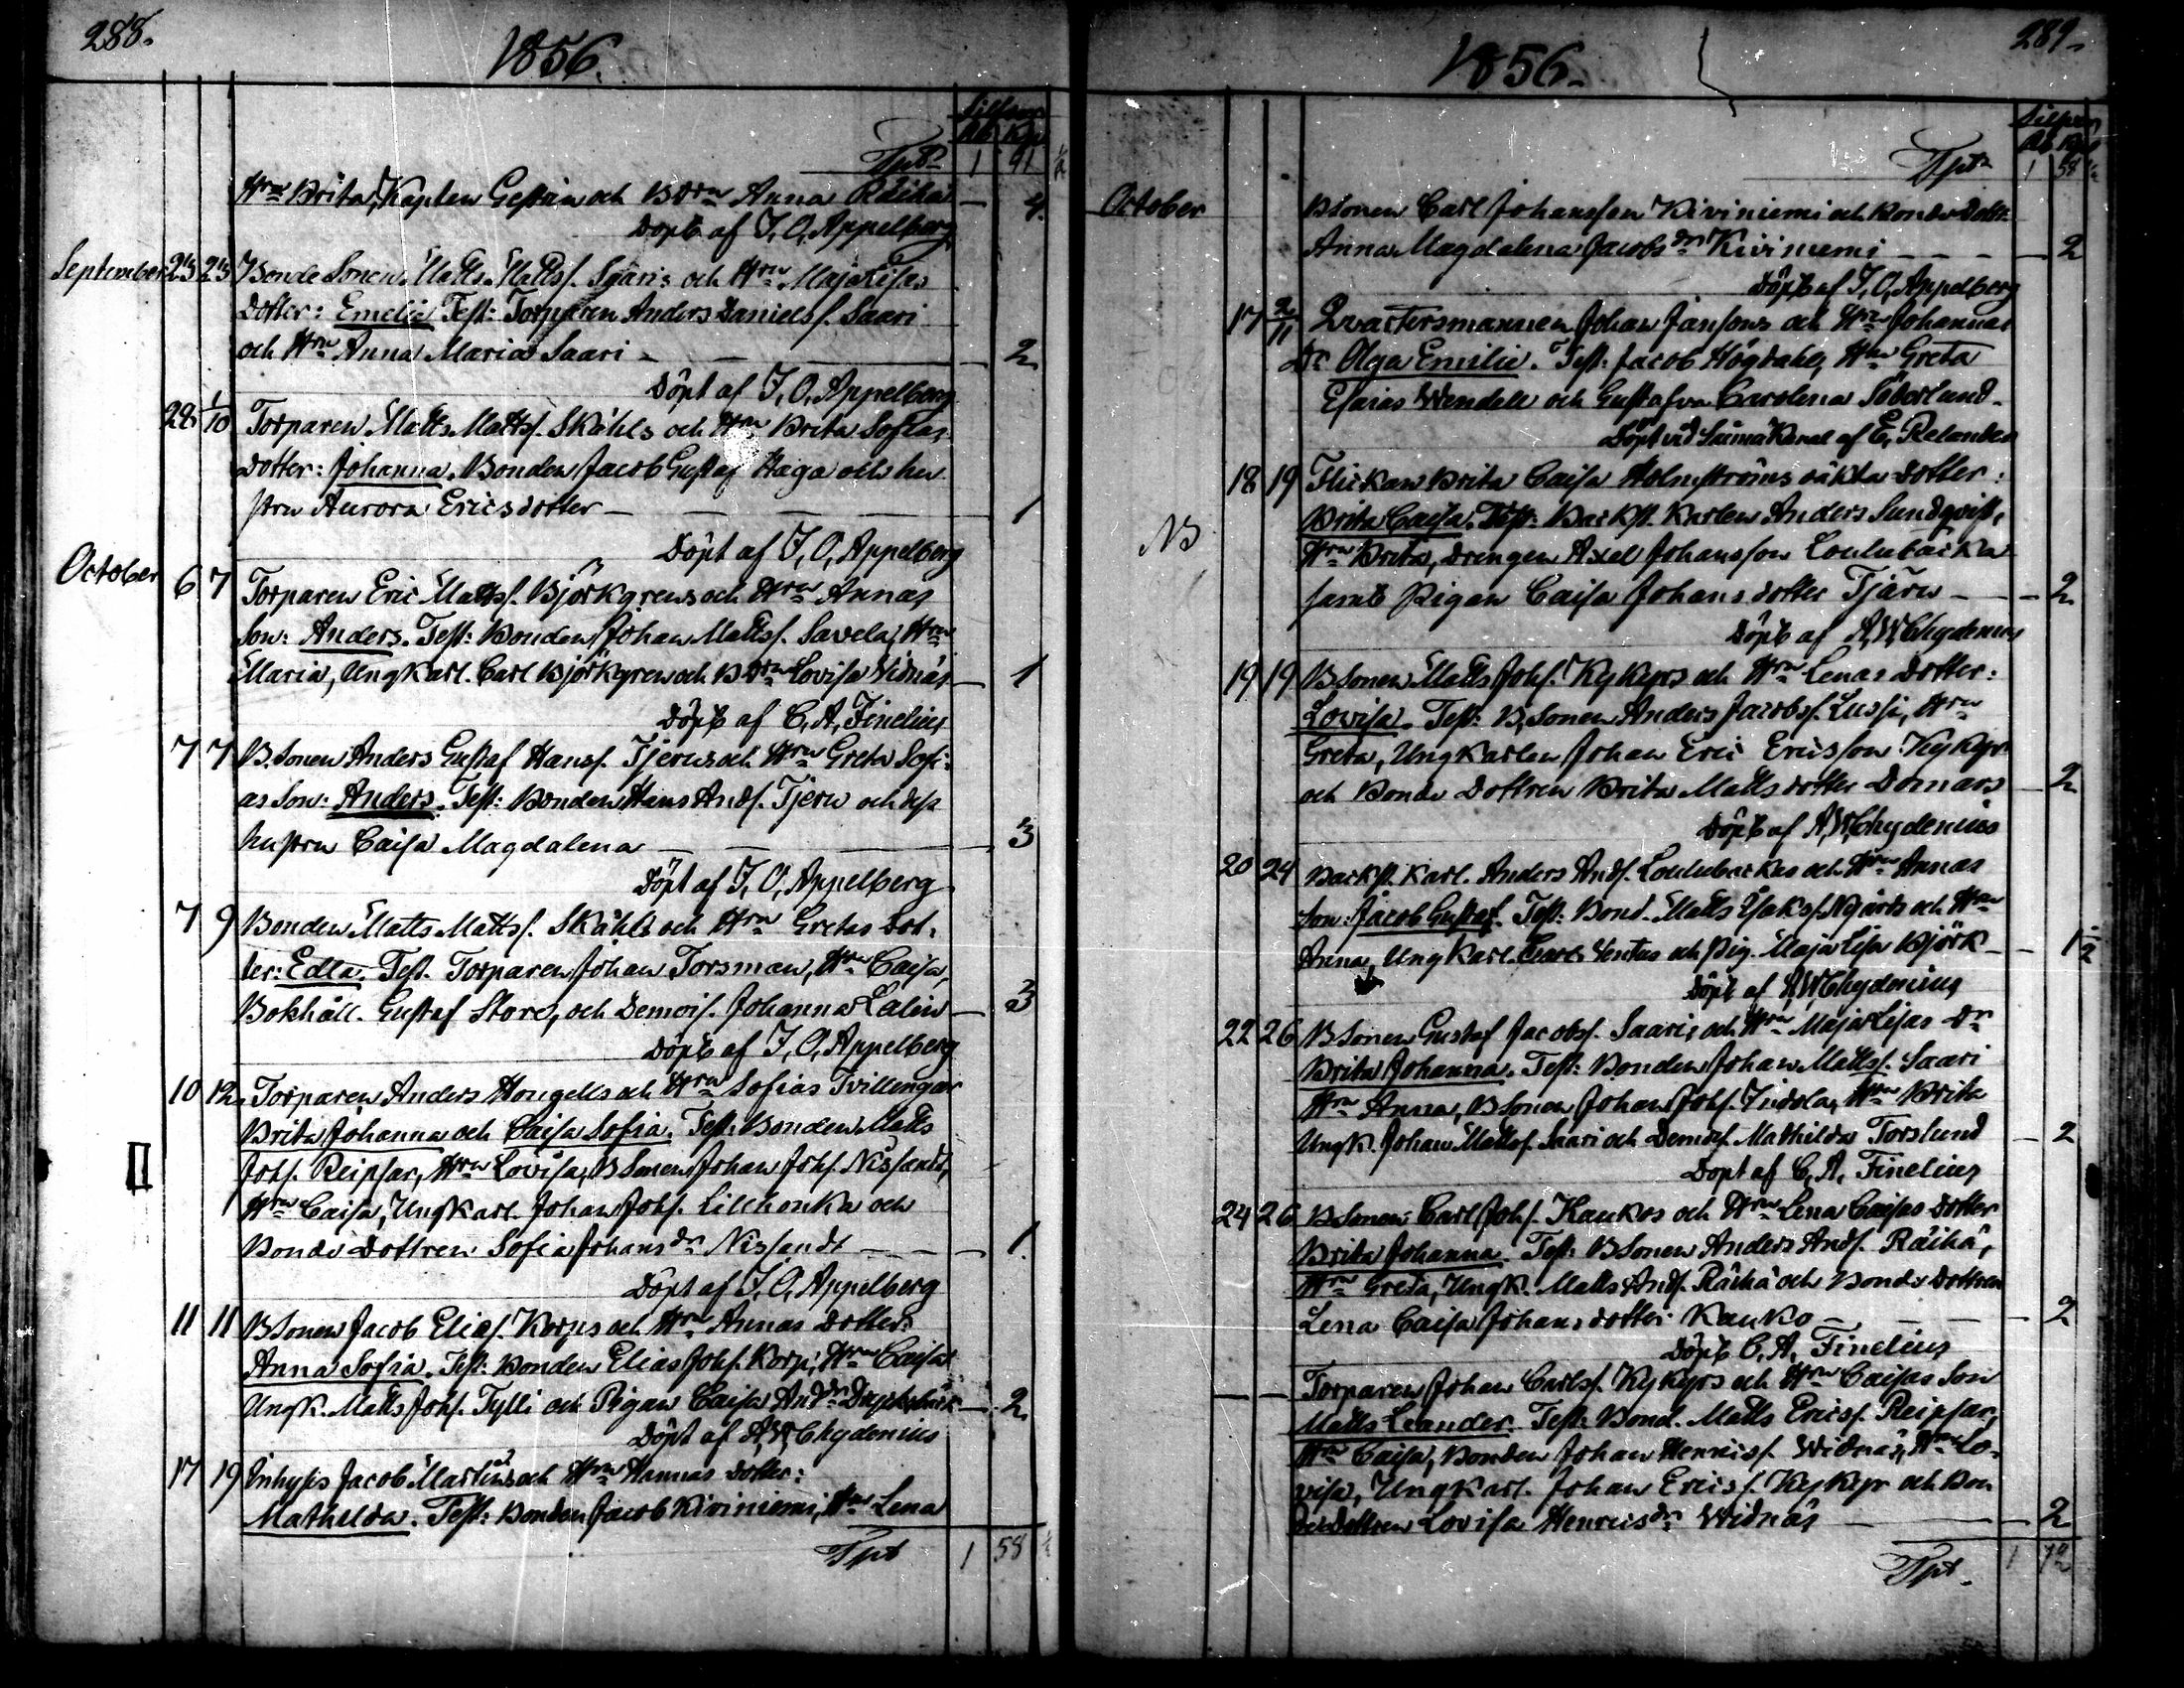 288.
1856.
Silfver
Rb Kop
Tpt 1 41 1/2
Hru Brita, Kapten Gestrin och Bdrn Anna Räihä — 4
Döpt af J. O. Appelberg
September 23 23 Bonde Sonen Matts Mattss. Saaris och Hru Maja Lisas
dotter: Emelie Test: Torparen Anders Danielss. Saari
och Hru Anna Maria Saari — 2
Döpt af J. O. Appelberg
28 1/10 Torparen Matts Mattss. Skåhls och Hru Brita Sofias
dotter: Johanna. Bonden Jacob Gustaf Haga och hu
stru Aurora Ericsdotter — 1
Döpt af J. O. Appelberg
October 6 7 Torparen Eric Mattss. Björkgrens och Hru Annas
Son: Anders. Test: Bonden Johan Mattss. Savela, Hru
Maria, Ungkarl. Carl Björkgren och Bdrn Lovisa Widnäs — 1
Döpt af C. A. Finelius
7 7 B.Sonen Anders Gustaf Hanss. Tjerus och Hru Greta Sofi-
as Son: Anders. Test: Bonden Hans Ands. Tjeru och dess
hustru Caisa Magdalena — 3
Döpt af J. O. Appelberg
7 9 Bonden Matts Mattss. Skåhls och Hru Gretas dot-
ter: Edla. Test. Torparen Johan Forsman, Hru Caisa,
Bokhåll. Gustaf Store, och Demois. Johanna Calin — 3
Döpt af J. O. Appelberg
10 12 Torparen Anders Hongells och Hru Sofias Tvillingar
Brita Johanna och Caisa Sofia. Test: Bonden Matts
II Johs. Reipsar, Hru Lovisa, BSonen Johan Johs. Nissandt,
Hru Caisa, Ungkarl. Johan Johs. Lillhonka och
Bonde Dottren Sofia Johans dr Nissandt — 1.
Döpt af J. O. Appelberg
11 11 BSonen Jacob Elias. Korps och Hru Annas Dotter:
Anna Sofia. Test: Bonden Elias Johs. Korp, Hru Caisa
Ungk. Matts Johs. Tylli och Pigan Caisa And dr — 2
Döpt af A. W. Chydenius
17 19 Inhyses Jacob Martins och Hru Hannas dotter:
Mathilda. Test: Bonden Jacob Kiviniemi, Hru Lena
Tpt 1 58 1/2
289.
1856.
Silfver
Rb Kop
Tpt 1 58 1/2
October BSonen Carl Johansson Kiviniemi och Bonde Dottr.
Anna Magdalena Jacobs dr Kiviniemi — 2
Döpt af J. O. Appelberg
17 2/11 Qvartersmannen Johan Jansons och Hru Johannas
Dr Olga Emilie. Test: Jacob Högdahl, Hru Greta
Esaias Wendell och Gustafva Carolina Söderlund.
Döpt vid Saima Kanal af E. Relander
18 19 Flickan Brita Caisa Holmströms oäkta dotter:
Brita Caisa. Test: Backst. Karlen Anders Sundqvist,
NB Hru Brita, drengen Axel Johansson Loulubacka
samt Pigan Caisa Johans dotter Tjäru — 2
Döpt af A. W. Chydenius
19 19 BSonen Matts Johs. Kykyrs och Hru Lenas dotter:
Lovisa. Test: B.Sonen Anders Jacobs. Lussi, Hru
Greta, Ungkarlen Johan Eric Ericsson Kykyr
och Bonde Dottren Brita Matts dotter Domars — 2
Döpt af A. W. Chydenius
20 24 Backst. Karl. Anders Ands. Loulubackas och Hru Annas
Son: Jacob Gustaf. Test: Bond. Matts Nygård och Hru
Anna, Ungkarl. Carl Ventus och Pig. Maja Lisa Björk — 1 1/2
Döpt af A. W. Chydenius
22 26 BSonen Gustaf Jacobss. Saaris och Hru Maja Lisas Dr
Brita Johanna. Test: Bonden Johan Mattss. Saari
Hru Anna, BSonen Johan Johs. Indola, Hru Brita
Ungk. Johan Mattss. Saari och Demois. Mathilda Forslund — 2
Döpt af C. A. Finelius
24 26 BSonen Carl Johs. Kaukos och Hru Lena Caisas Dotter
Brita Johanna. Test: BSonen Anders Ands. Räihä,
Hru Greta, Ungk. Matts Ands. Räihä och Bonde Dottren
Lena Caisa Johans dotter Kauko — 2
Döpt C. A. Finelius
— — Torparen Johan Carlss. Kykyrs och Hru Caisas Son
Matts Leander. Test: Bond. Matts Ericss. Reipsar,
Hru Caisa, Bonden Johan Henricss. Widnäs, Hru Lo-
visa, Ungkarl. Johan Ericss. Kykyr och Bon
de Dottren Lovisa Henrics dr Widnäs — 2
Tpt. 1 72